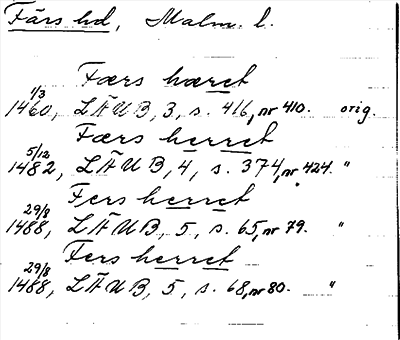 Färs hd, Malm. l.
Færs hæret
1/3 1460, LÄUB, 3, s. 416, nr 410. orig.
Færs herret
5/12 1482, LÄUB, 4, s. 374, nr 424. "
Fers herret
29/8 1488, LÄUB, 5, s. 65, nr 79. "
Fers herret
29/8 1488, LÄUB, 5, s. 68, nr 80. "